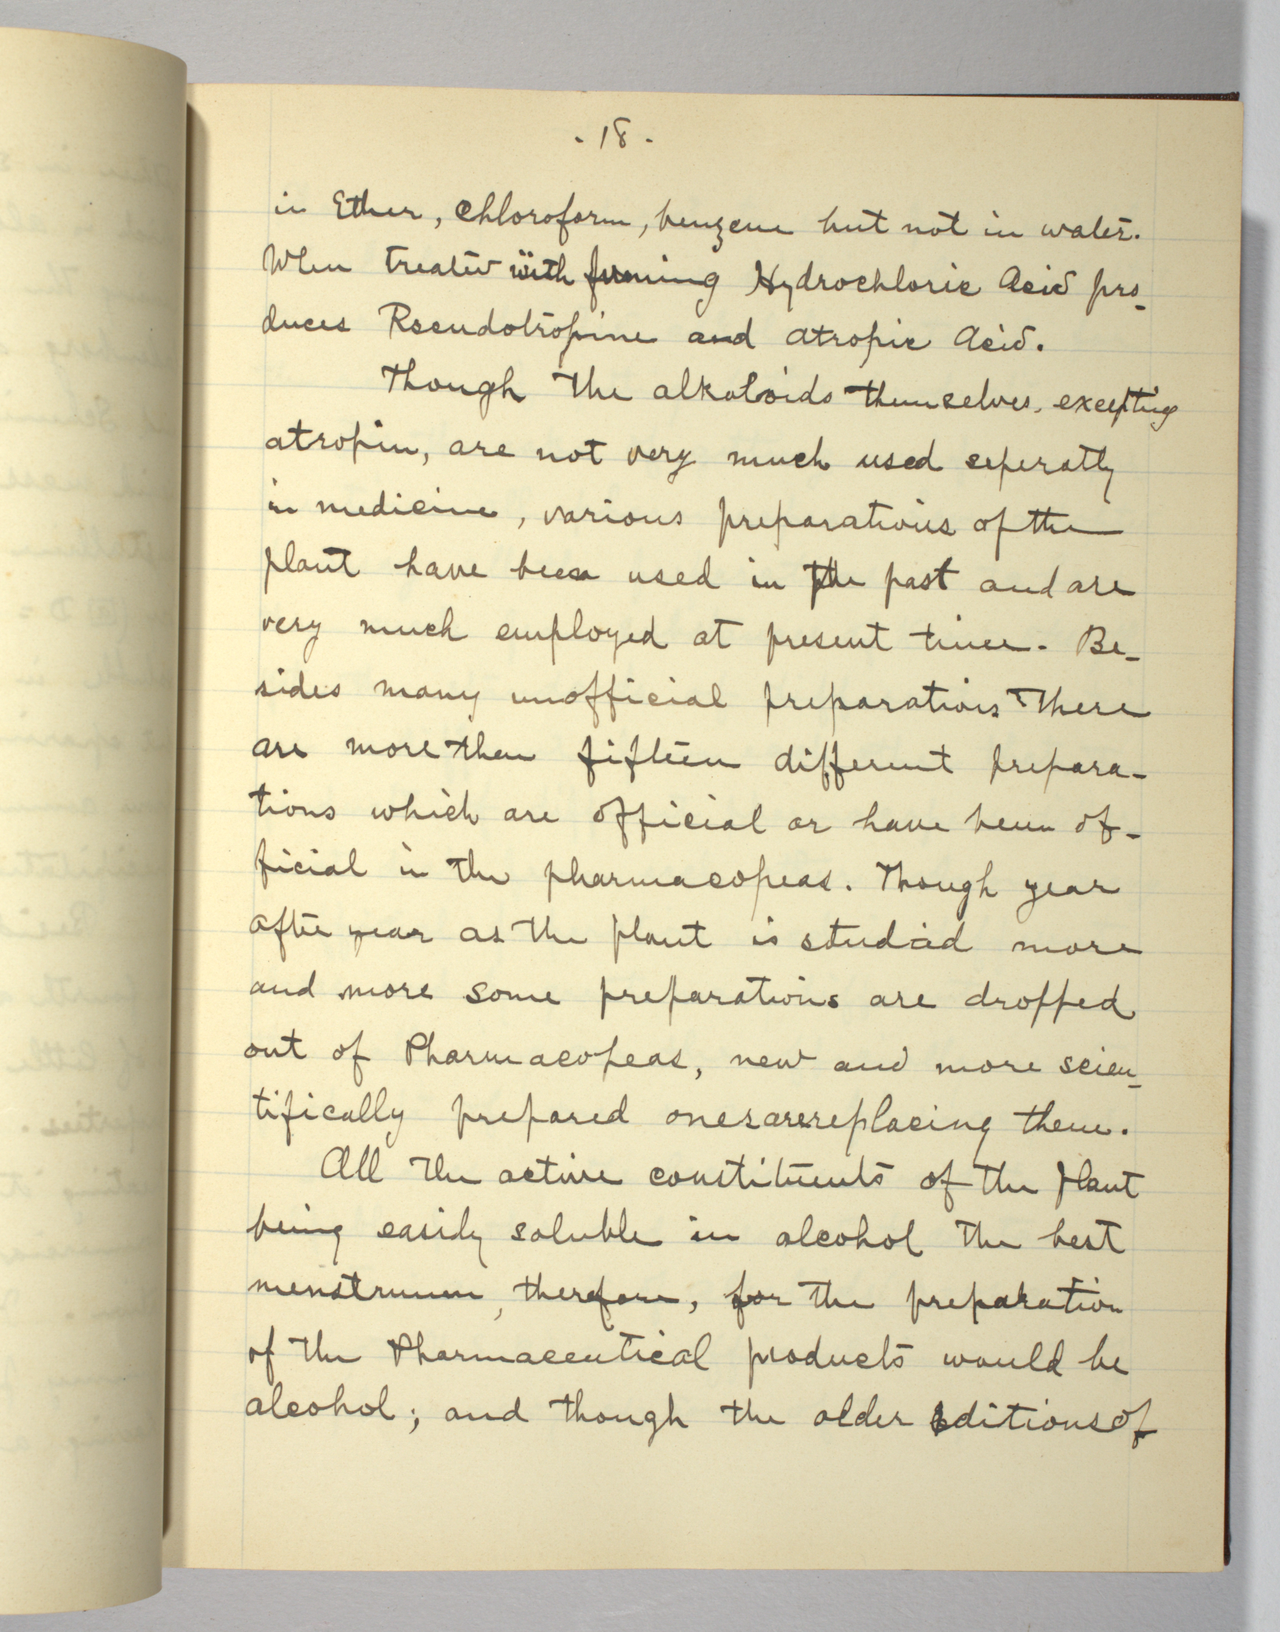 - 18 -
in Ether, Chloroform, benzene but not in water.
When treated with fuming Hydrochloric Acid pro-
duces Pseudotropine and atropic Acid.
Though the alkaloids themselves, excepting
atropin, are not very much used seperatly
in medicine, various preparations of the
plant have been used in the past and are
very much employed at present time. Be-
sides many unofficial preparations there
are more then fifteen different prepara-
tions which are official or have been of-
ficial in the pharmacopeas. Though year
after year as the plant is studied more
and more some preparations are dropped
out of Pharmacopeas, new and more scien-
tifically prepared ones are replacing them.
All the active constituents of the plant
being easily soluble in alcohol the best
menstruum, therefore, for the preparation
of the Pharmaceutical products would be
alcohol; and though the older editions of